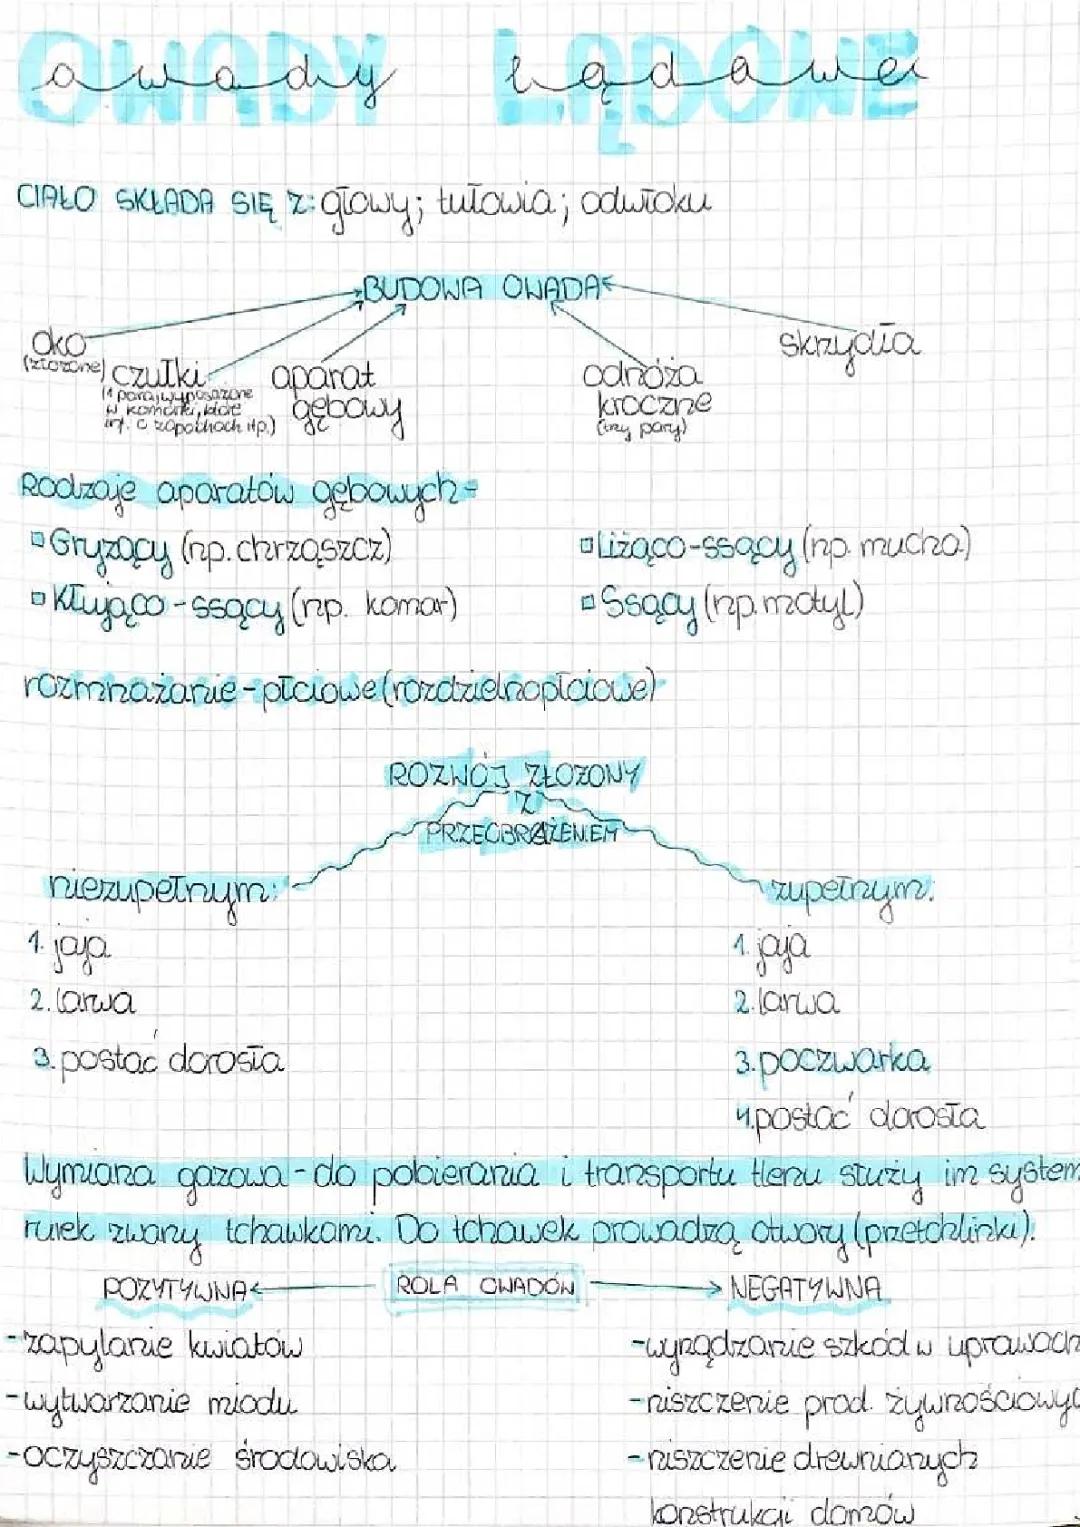 OWADY LĄDOWE
owady lądowe
CIAŁO SKŁADA SIĘ Z: głowy; tułowia; odwłoku
BUDOWA OWADA
oko
(złożone)
czułki
(1 para, wyposażone
w komórki, które
inf. o zapachach itp.)
aparat
gębowy
odnóża
kroczne
(trzy pary)
skrzydła
Rodzaje aparatów gębowych-
Gryzący (np. chrząszcz)
Liżąco-ssący (np. mucha)
Kłująco-ssący (np. komar)
Ssący (np. motyl)
rozmnażanie-płciowe (rozdzielnopłciowe)
ROZWÓJ ZŁOŻONY
Z
PRZEOBRAŻENIEM
niezupełnym:
1. jaja
2. larwa
3. postać dorosła
zupełnym:
1. jaja
2. larwa
3. poczwarka
4. postać dorosła
Wymiana gazowa - do pobierania i transportu tlenu służy im system
rurek zwany tchawkami. Do tchawek prowadzą otwory (przetchlinki).
POZYTYWNA
ROLA OWADÓW
NEGATYWNA
-zapylanie kwiatów
-wytwarzanie miodu
-oczyszczanie środowiska
-wyrządzanie szkód w uprawach
-niszczenie prod. żywnościowyc
-niszczenie drewnianych
konstrukcji domów